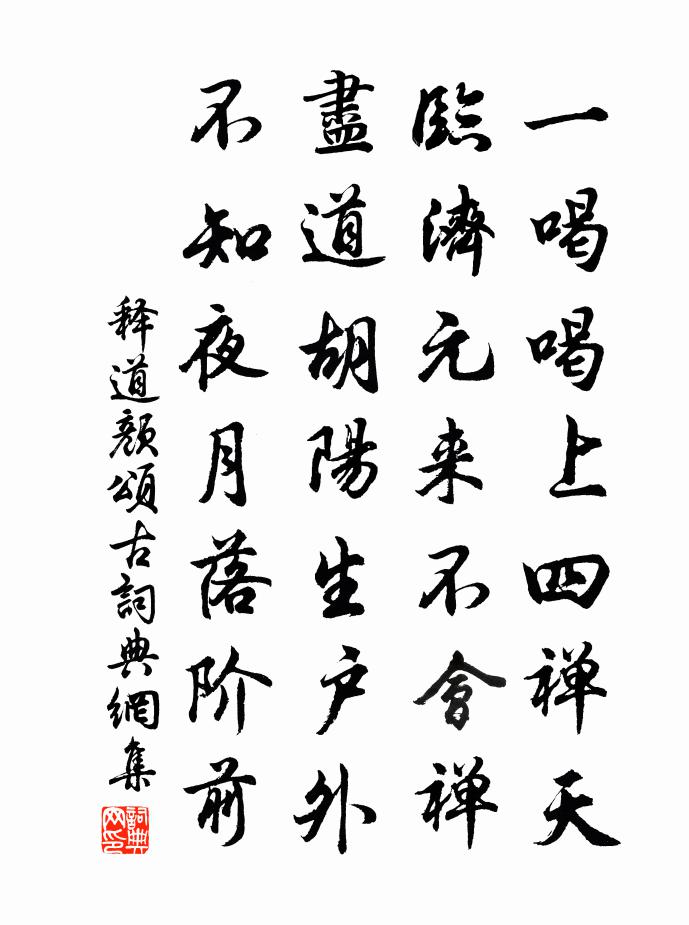 一喝喝上四禅天
臨濟元来不會禅
盡道胡陽生戶外
不知夜月落阶前
释道顏頌古詞典網集
詞典网印